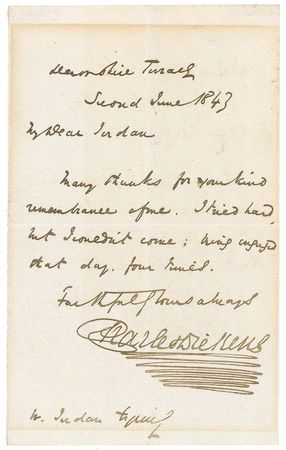 Devonshire Terrace
Second June 1843
My Dear Jerdan
Many thanks for your kind
remembrance of me. I tried hard,
but I couldn't come; being engaged
that day, four times.
Faithfully Yours always
Charles Dickens
W. Jerdan Esquire